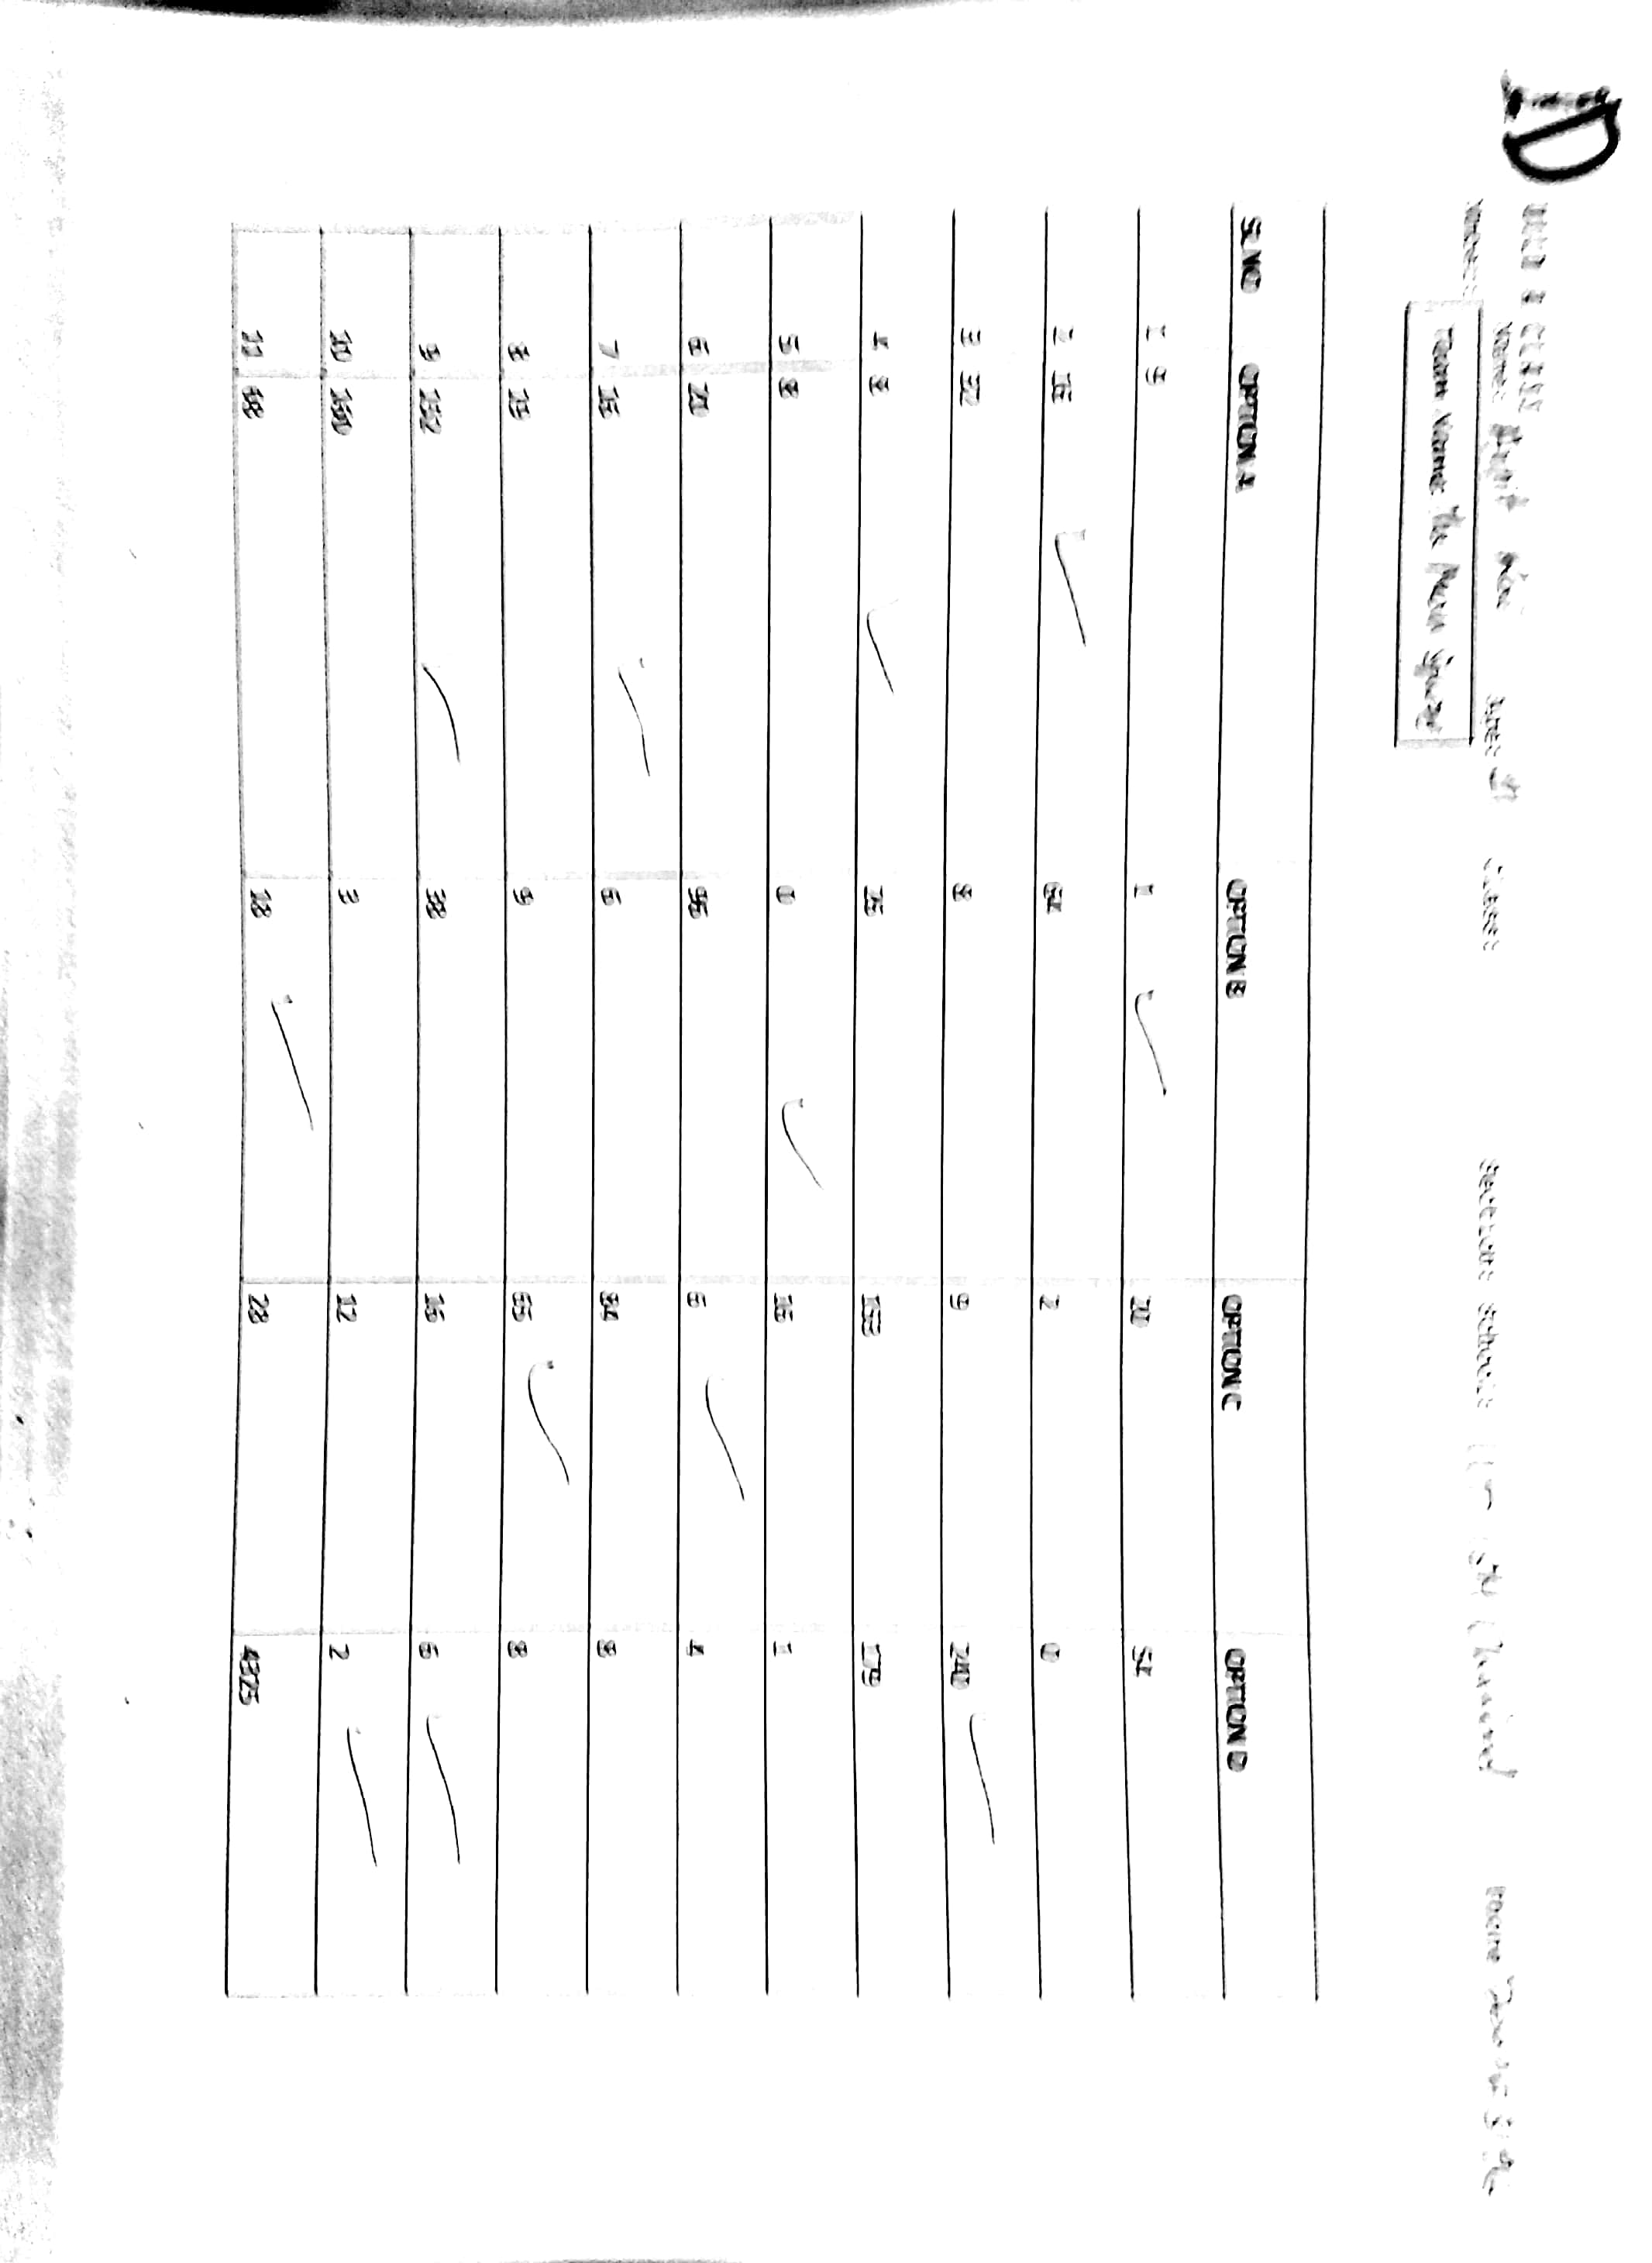 D
CLASS
Name:
Age: Class: Section: School: Phone
Team Name: The Mean Square
SL NO OPTION A OPTION B OPTION C OPTION D
1 9 1 ✓ 20 54
2 16 ✓ 64 2 0
3 32 8 9 240 ✓
4 8 ✓ 25 153 179
5 8 0 ✓ 16 1
6 20 96 6 ✓ 4
7 16 ✓ 6 84 8
8 19 9 65 ✓ 8
9 152 ✓ 38 16 6 ✓
10 160 3 12 2 ✓
11 68 18 ✓ 28 4325